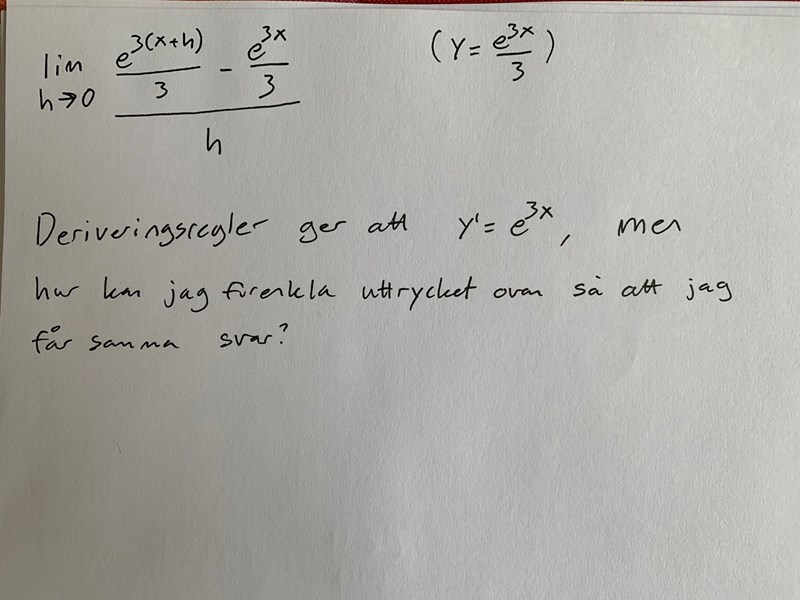 lim h→0 (e^{3(x+h)}/3 - e^{3x}/3)/h (Y = e^{3x}/3)
Deriveringsregler ger att Y' = e^{3x}, men
hur kan jag förenkla uttrycket ovan så att jag
får samma svar?